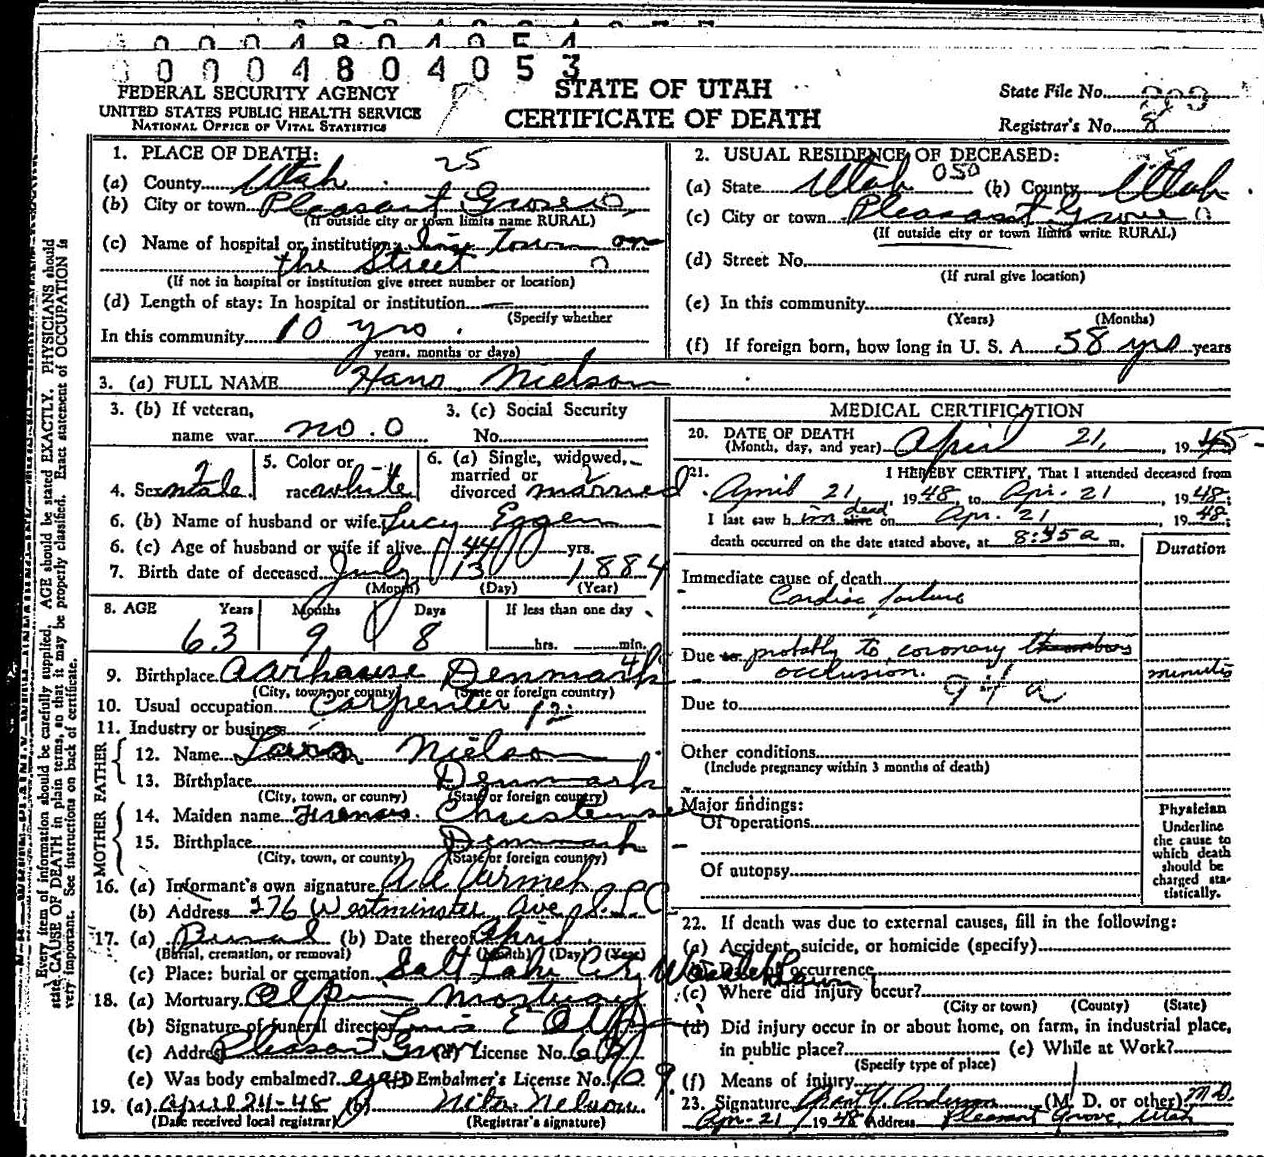 0 0 0 4 8 0 4 0 5 4
0 0 0 4 8 0 4 0 5 3
FEDERAL SECURITY AGENCY
UNITED STATES PUBLIC HEALTH SERVICE
NATIONAL OFFICE OF VITAL STATISTICS
STATE OF UTAH
CERTIFICATE OF DEATH
State File No.
Registrar's No. 8
1. PLACE OF DEATH: 25
(a) County Utah
(b) City or town Pleasant Grove
(If outside city or town limits name RURAL)
(c) Name of hospital or institution: in Town on
the Street
(If not in hospital or institution give street number or location)
(d) Length of stay: In hospital or institution
(Specify whether
In this community 10 yrs.
years, months or days)
2. USUAL RESIDENCE OF DECEASED:
050
(a) State Utah (b) County Utah
(c) City or town Pleasant Grove
(If outside city or town limits write RURAL)
(d) Street No.
(If rural give location)
(e) In this community
(Years) (Months)
(f) If foreign born, how long in U. S. A. 58 yrs years
3. (a) FULL NAME Hans Nielson
3. (b) If veteran,
name war no. 0
3. (c) Social Security
No.
4. Sex male
5. Color or
race white
6. (a) Single, widowed,
married or
divorced married
6. (b) Name of husband or wife Lucy Eggen
6. (c) Age of husband or wife if alive 44 yrs.
7. Birth date of deceased July 13 1884
(Month) (Day) (Year)
8. AGE Years Months Days If less than one day
63 9 8 hrs. min.
9. Birthplace Aarhause Denmark
(City, town, or county) (State or foreign country)
10. Usual occupation Carpenter 12
11. Industry or business
FATHER
12. Name Lars Nielson
13. Birthplace Denmark
(City, town, or county) (State or foreign country)
MOTHER
14. Maiden name Christense
15. Birthplace Denmark
(City, town, or county) (State or foreign country)
16. (a) Informant's own signature
(b) Address 276 Westminster Ave S.L.C
17. (a) Burial (b) Date thereof April
(Burial, cremation, or removal) (Month) (Day) (Year)
(c) Place: burial or cremation Salt Lake City Wasatch Lawn
18. (a) Mortuary Olpin Mortuary
(b) Signature of funeral director
(c) Address Pleasant Grove (d) License No.
(e) Was body embalmed? yes (f) Embalmer's License No. 109
19. (a) april 24-48 (b) Nita Nelson
(Date received local registrar) (Registrar's signature)
MEDICAL CERTIFICATION
20. DATE OF DEATH
(Month, day, and year) April 21, 1945
21. I HEREBY CERTIFY, That I attended deceased from
April 21, 1948, to Apr. 21, 1948;
I last saw him dead alive on Apr. 21, 1948;
death occurred on the date stated above, at 8:45 a m.
Duration
Immediate cause of death
Cardiac failure
Due to probably to coronary thrombus
occlusion. minutes
94a
Due to
Other conditions
(Include pregnancy within 3 months of death)
Major findings:
Of operations
Of autopsy
Physician
Underline
the cause to
which death
should be
charged sta-
tistically.
22. If death was due to external causes, fill in the following:
(a) Accident, suicide, or homicide (specify)
(b) Date of occurrence
(c) Where did injury occur?
(City or town) (County) (State)
(d) Did injury occur in or about home, on farm, in industrial place,
in public place? (e) While at Work?
(Specify type of place)
(f) Means of injury
23. Signature Grant Y. Anderson (M. D. or other) M.D.
Apr. 21, 1948 Address Pleasant Grove, Utah
Every item of information should be carefully supplied. AGE should be stated EXACTLY. PHYSICIANS should
state CAUSE OF DEATH in plain terms, so that it may be properly classified. Exact statement of OCCUPATION is
very important. See instructions on back of certificate.